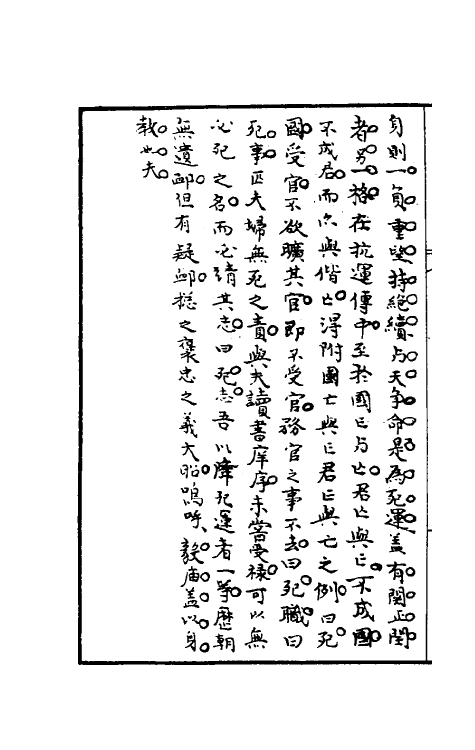 身則一肩重堅持絕續与天爭命是為死運盖有関正閏
者另一格在抗運傳中至於國亡与亡君亡與亡不成國
不成君而亦與偕亡得附國亡與亡君亡與亡之例曰死
國受官不欲曠其官即不受官務官之事不去曰死職曰
死事匹夫婦無死之責與夫讀書庠序未嘗受祿可以無
必死之名而必靖其志曰死志吾以降死運者一等歷朝
無遺卹但有疑卹揔之褒忠之義大昭嗚呼毅廟盖以身
教也夫